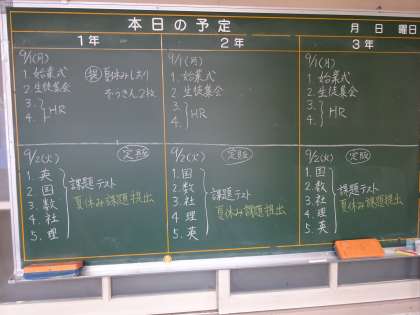 本日の予定
月 日 曜日
1年
2年
3年
9/1(月)
1. 始業式
2. 生徒集会
3.
4.
HR
夏休みしおり
ぞうきん2枚
9/1(月)
1. 始業式
2. 生徒集会
3.
4.
HR
9/1(月)
1. 始業式
2. 生徒集会
3.
4.
HR
9/2(火)
1. 英
2. 国
3. 数
4. 社
5. 理
課題テスト
夏休み課題提出
9/2(火)
1. 国
2. 数
3. 社
4. 理
5. 英
課題テスト
夏休み課題提出
9/2(火)
1. 国
2. 数
3. 社
4. 理
5. 英
課題テスト
夏休み課題提出